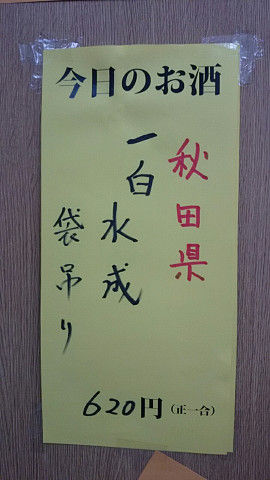 今日のお酒
秋田県
一白水成
袋吊り
620円(正一合)